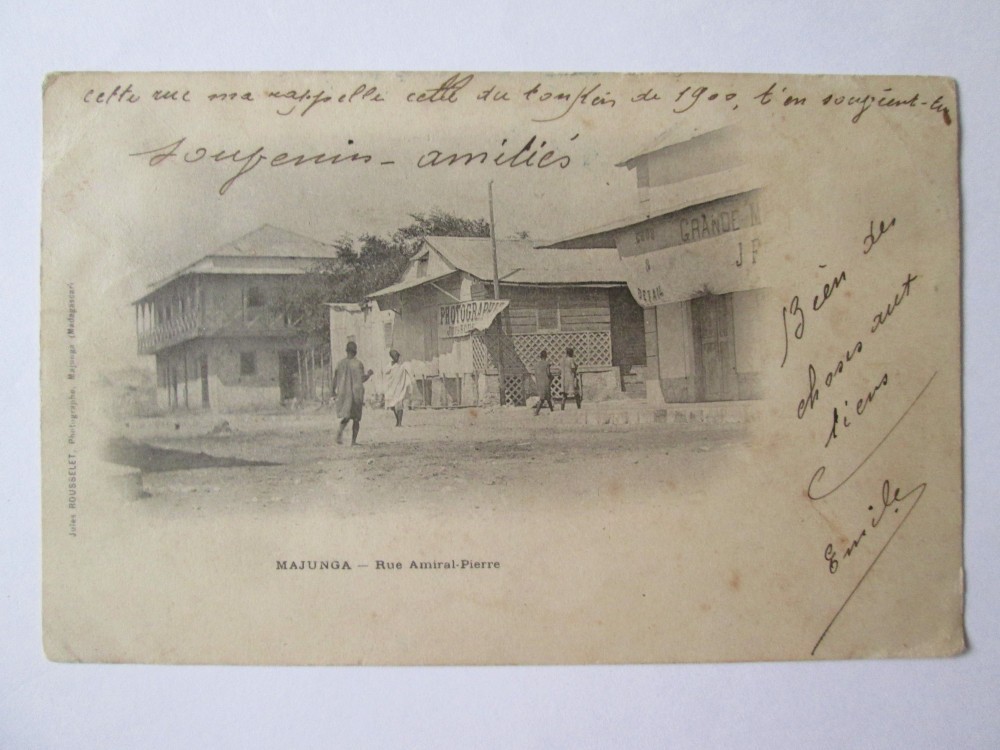 cette rue ma rappelle celle du tonkin de 1900, t'en souvient-tu
souvenirs - amitiés
GRANDE M
J P
DETAIL
PHOTOGRAPHIE
Bien des
choses aux
tiens
Emile
Jules ROUSSELET, Photographe, Majunga (Madagascar)
MAJUNGA — Rue Amiral-Pierre